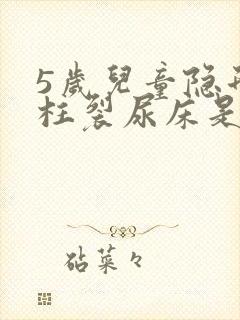 5歲兒童隐
柱裂尿床是
砧菜々